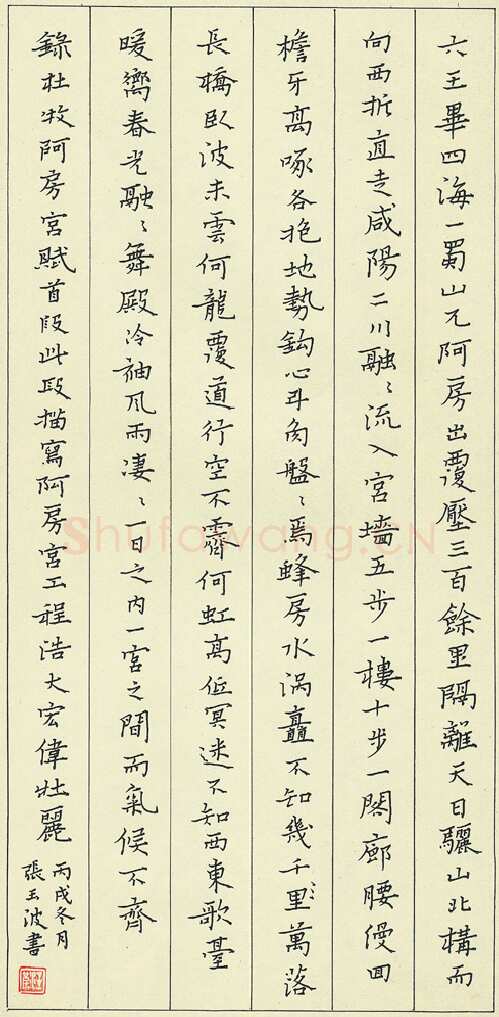 六王畢四海一蜀山兀阿房出覆壓三百餘里隔離天日驪山北構而
向西折直走咸陽二川融〻流入宮墻五步一樓十步一閣廊腰縵回
檐牙高啄各抱地勢鈎心斗角盤〻焉蜂房水渦矗不知幾千里萬落
長橋卧波未雲何龍覆道行空不霽何虹高低冥迷不知西東歌臺
暖嚮春光融〻舞殿冷袖風雨凄〻一日之內一宮之間而氣候不齊
錄杜牧阿房宮賦首段此段描寫阿房宮工程浩大宏偉壯麗
丙戌冬月
張玉波書
Shufawang.CN